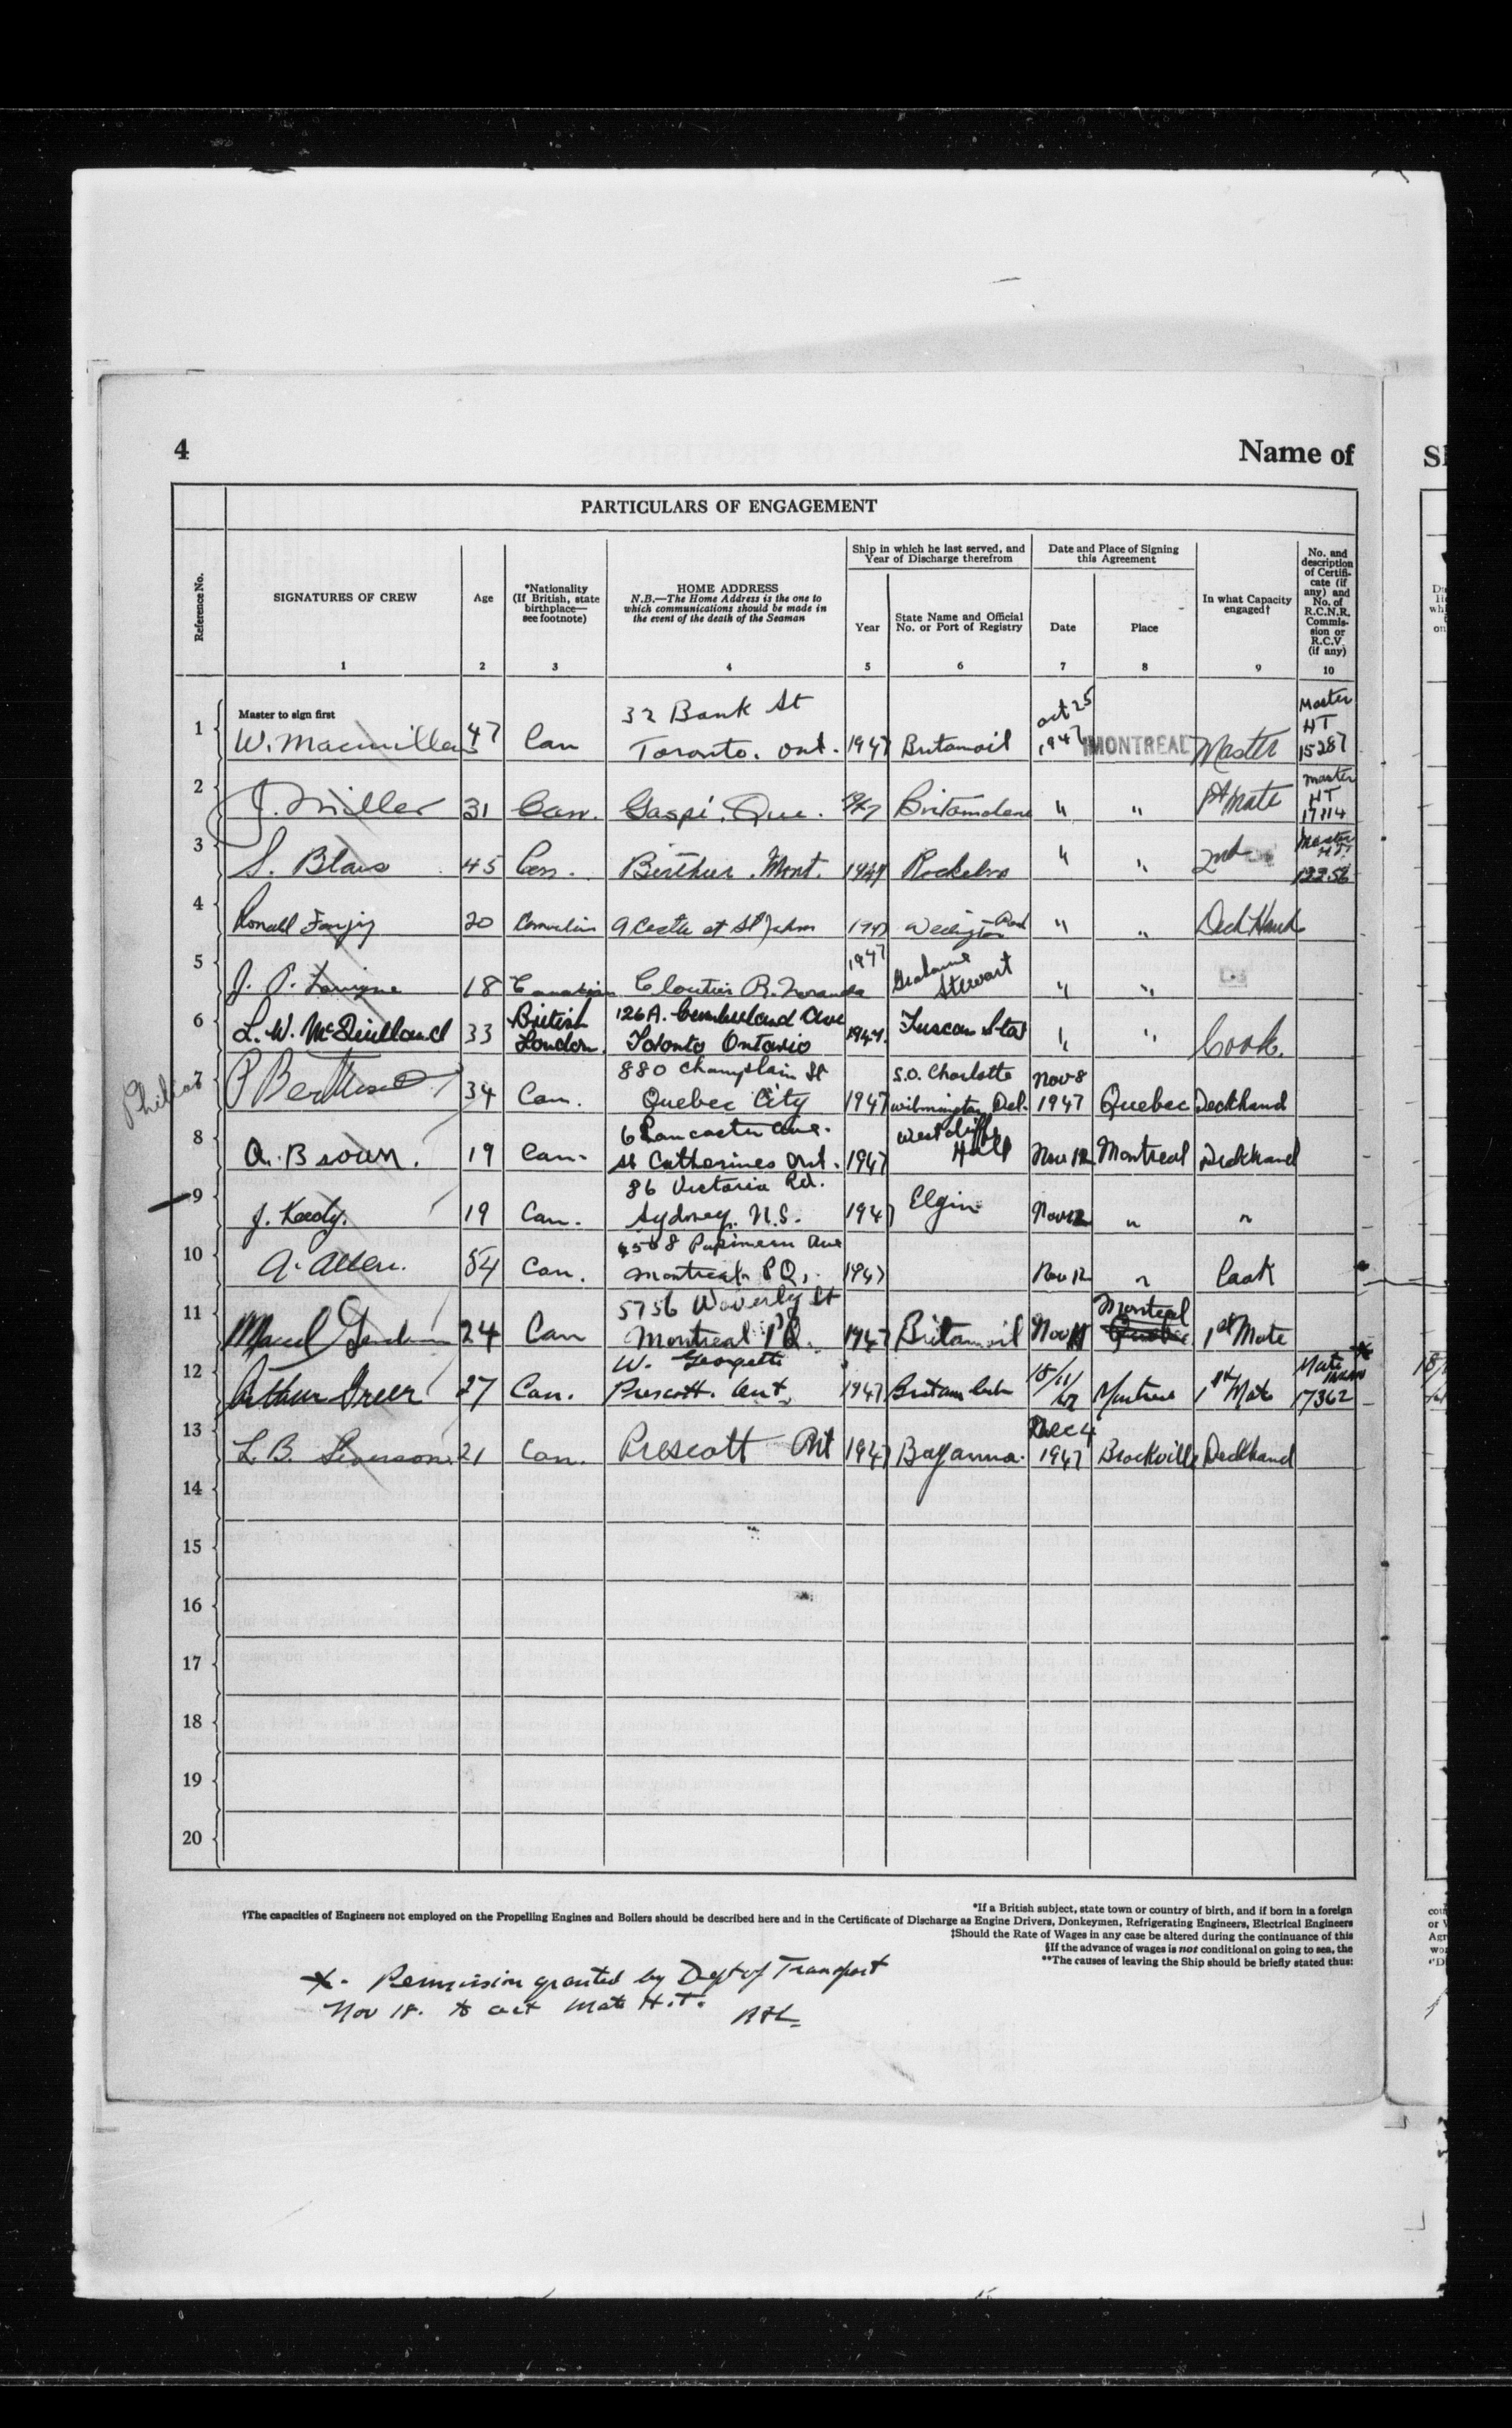 4
Name of
PARTICULARS OF ENGAGEMENT
Reference No.
SIGNATURES OF CREW
1
Age
2
*Nationality
(If British, state
birthplace—
see footnote)
3
HOME ADDRESS
N.B.—The Home Address is the one to
which communications should be made in
the event of the death of the Seaman
4
Ship in which he last served, and
Year of Discharge therefrom
Year
5
State Name and Official
No. or Port of Registry
6
Date and Place of Signing
this Agreement
Date
7
Place
8
In what Capacity
engaged†
9
No. and
description
of Certifi-
cate (if
any) and
No. of
R.C.N.R.
Commis-
sion or
R.C.V.
(if any)
10
Master to sign first
1 W. Macmillan 47 Can 32 Bank St
Toronto. Ont. 1947 Britamoil Oct 25
1947 MONTREAL Master Master
HT
15287
2 J. Miller 31 Can. Gaspi. Que. Britamolene " " 1st Mate Master
HT
17114
3 S. Blais 45 Can. Berthier. Mont. 1947 " " 2nd Master
12256
4 20 St John 1947 " " Deck Hand
5 J. P. Lavigne 18 Canadian Cloutier R. Noranda 1947 Grahame
Stewart " "
6 L. W. 33 British
London. 126A. Cumberland Ave
Toronto Ontario 1947. Tuscan Star " " Cook.
7 P 34 Can. 880 Champlain St
Quebec City 1947 S.O. Charlotte
Wilmington Del. Nov 8
1947 Quebec Deckhand
8 A. Brown. 19 Can. 6 Lancaster Ave.
St Catherines Ont. 1947 Westcliffe
Hall Nov 12 Montreal Deckhand
9 J. Keedy. 19 Can. 86 Victoria Rd.
Sydney. N.S. 1947 Elgin Nov 12 " "
10 A. Allen. 54 Can. 4568 Papineau Ave
Montreal PQ. 1947 Nov 12 " Cook
11 Marcel 24 Can 5756 Waverly St
Montreal PQ. 1947 Britamoil Nov Montreal
Quebec 1st Mate
12 Arthur Greer 27 Can. W. Georgette
Prescott. Ont. 1947 18/11/
47 Montreal 1st Mate Mate
17362
13 L. B. 21 Can. Prescott Ont 1947 Bayanna. Dec 4
1947 Brockville Deckhand
14
15
16
17
18
19
20
*If a British subject, state town or country of birth, and if born in a foreign
†The capacities of Engineers not employed on the Propelling Engines and Boilers should be described here and in the Certificate of Discharge as Engine Drivers, Donkeymen, Refrigerating Engineers, Electrical Engineers
‡Should the Rate of Wages in any case be altered during the continuance of this
§If the advance of wages is not conditional on going to sea, the
**The causes of leaving the Ship should be briefly stated thus:
x. Permission granted by Dept of Transport
Nov 18. to act Mate H.T.